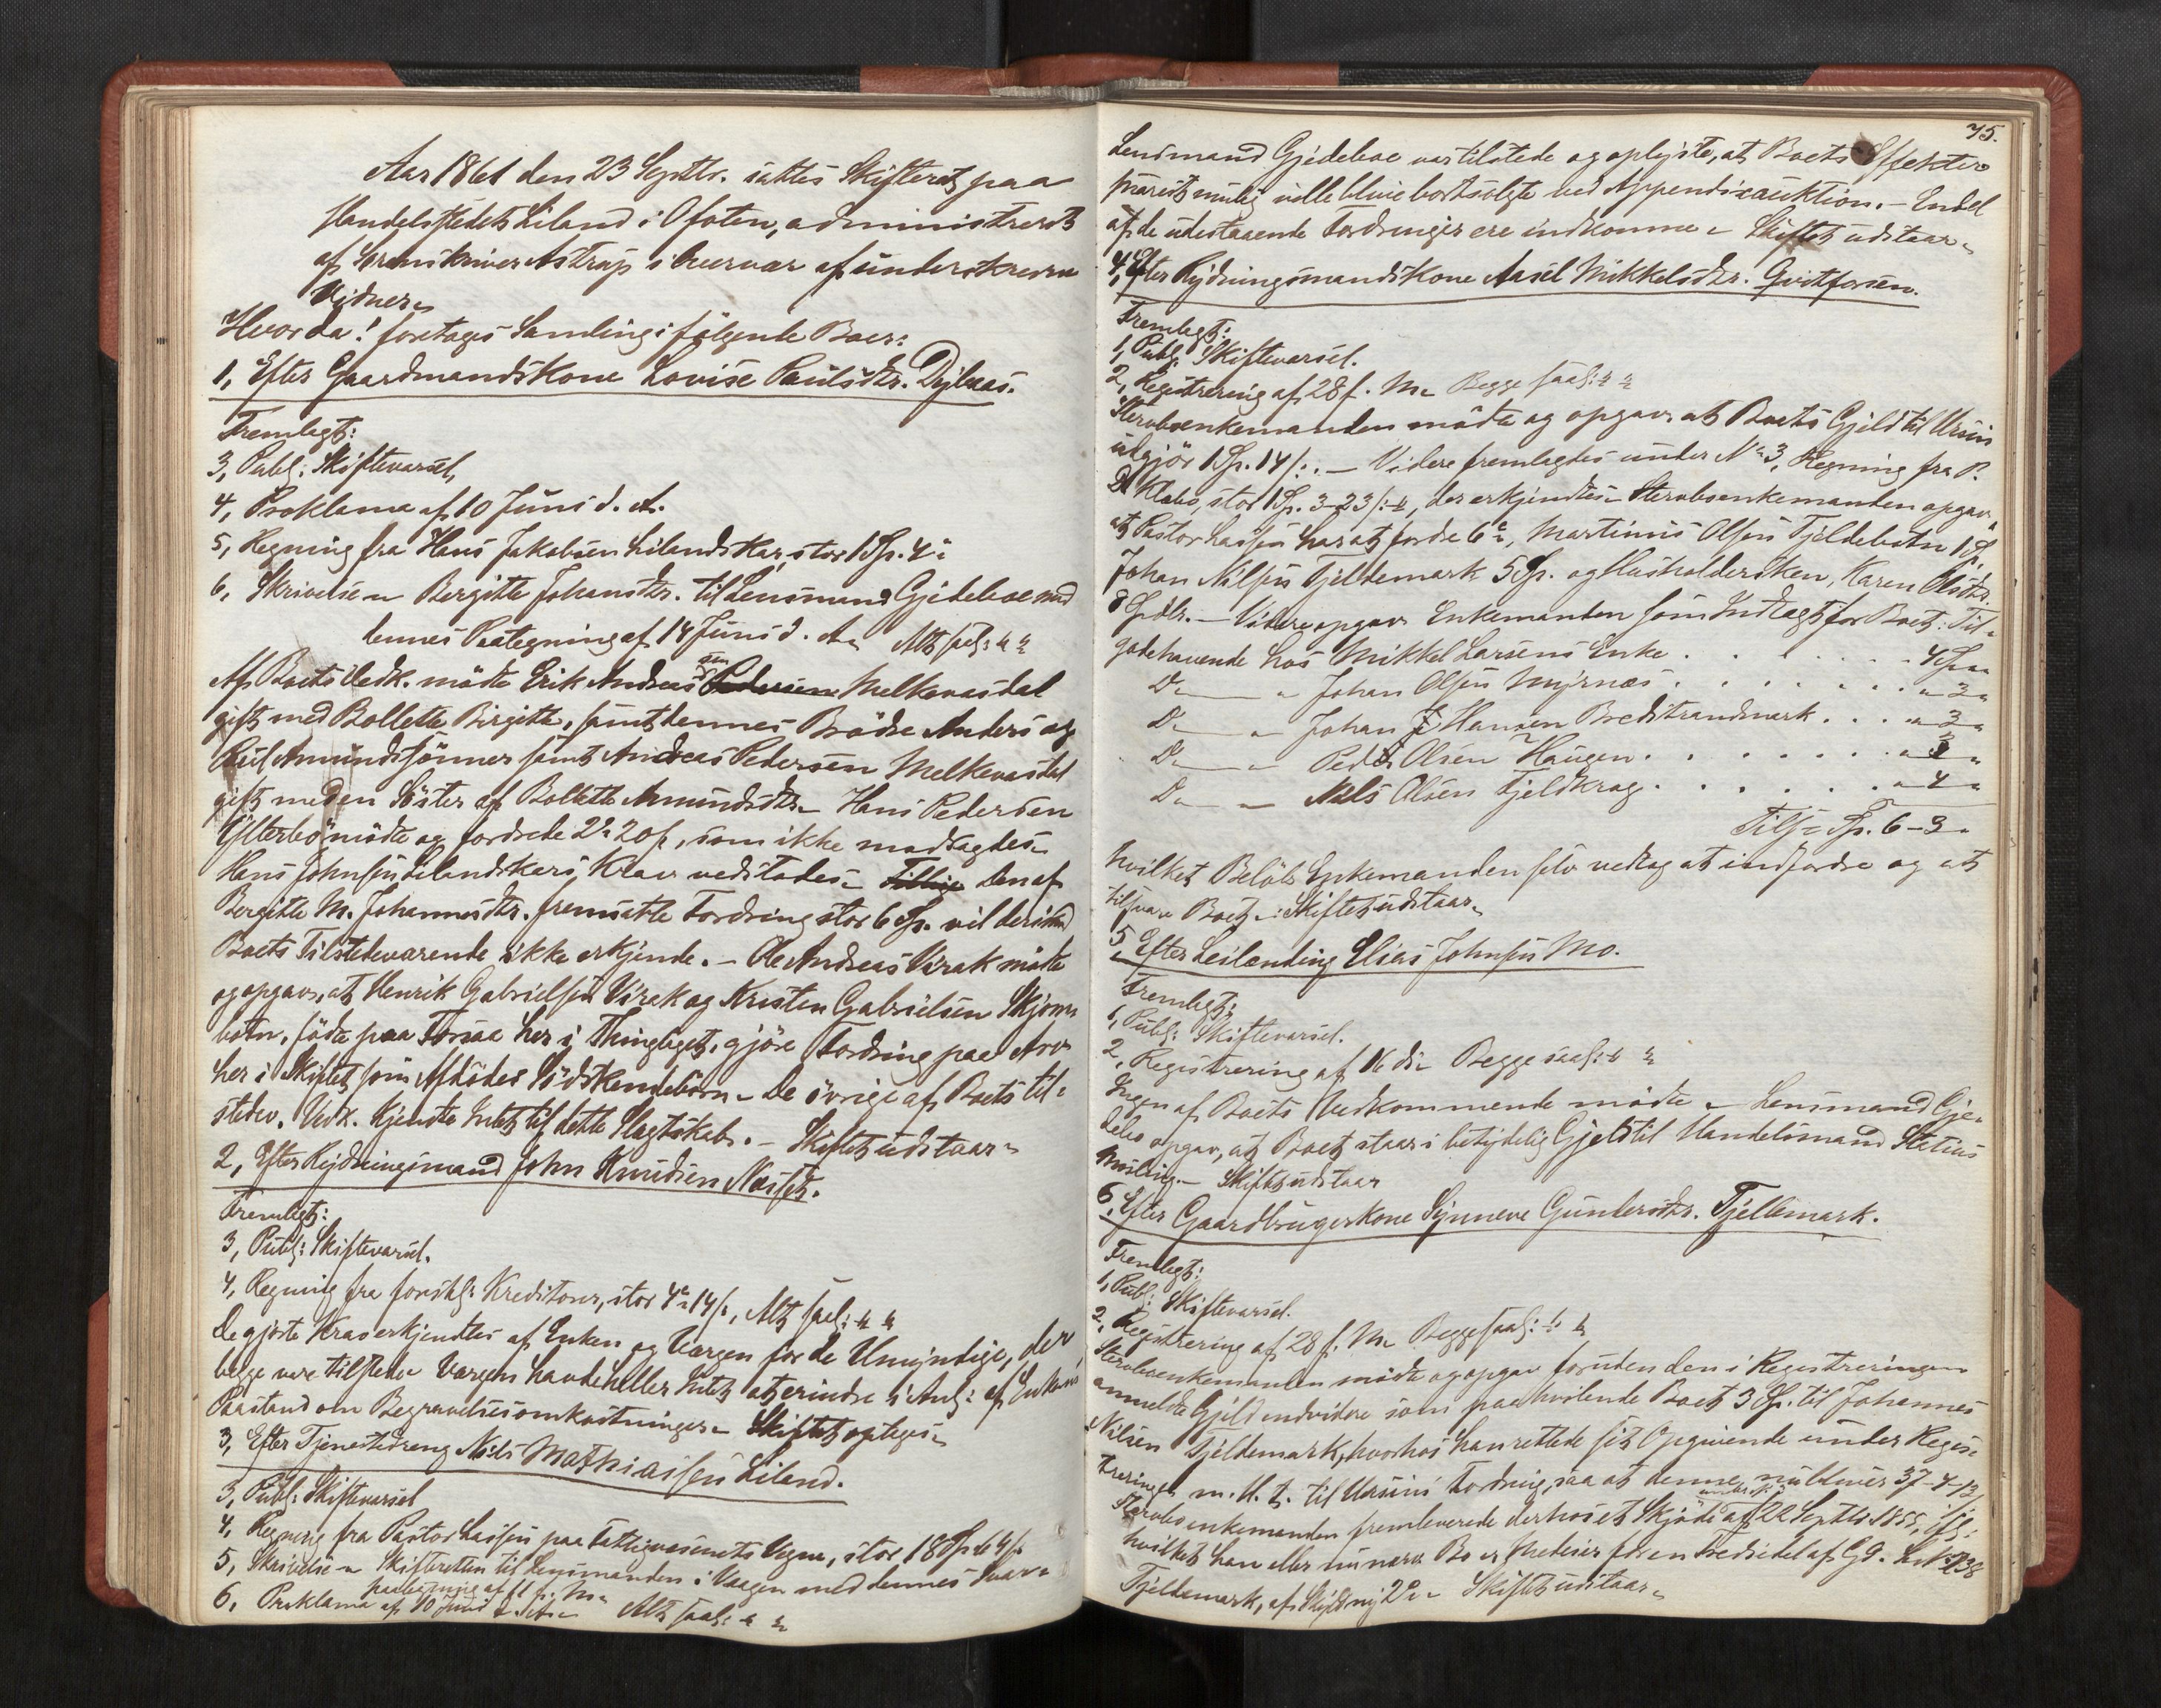 Aar 1861 den 23 Septbr. sattes Skifteret paa
Handelsstedet Liland i Ofoten, administreret
af Sorenskriver Astrup i Overvær af underskrevne
Vidner.
Hvorda! foretoges Samling i følgende Boer:
1, Efter Gaardmandskone Lovise Paulsdtr. Dybaas.
Fremlagt:
3, Publ: Skiftevarsel,
4, Proklama af 10 Juni d. A.
5, Regning fra Hans Jakobsen Lilandskar, stor 1 Sp. 4
6, Skrivelse Bergitte Johansdtr. til Lensmand Gjedeboe med
dennes Paategning af 14 Juni d. A. Alt saal:
Af Boets Vedk. mødte Erik Andreassen Pedersen Melkevasdal
gift med Bollette Birgitte, samt dennes Brødre Anders og
Paul Amundssønner samt Andreas Pedersen Melkevasdal
gift med en Søster af Bollette Amundsdtr. Hans Pedersen
Ytterbø mødte og fordrede 2 20 s, som ikke modtagdes.
Hans Johnsen Lilandskars Krav vedstodes. Tillige Den af
Bergitte M. Johannesdtr. fremsatte Fordring stor 6 Sp. vil derimod
Boets Tilstedeværende ikke erkjende. – Ole Andreas Virak mødte
og opgav, at Henrik Gabrielsen Virak og Kristen Gabrielsen Skjom-
botn, fødte paa Forsaa her i Thinglaget, gjøre Fordring paa Arv
her i Skiftet som Afdødes Sødskendebørn. De øvrige af Boets til-
stedev. Vedk. kjendte Intet til dette Slægtskab. – Skiftet udstaar.
2, Efter Rydningsmand John Knudsen Næsset.
Fremlagt:
3, Publ: Skiftevarsel.
4, Regning fra forskl: Kreditorer, stor 4 14 s, Alt saal:
De gjorte Krav erkjendtes af Enken og Værgen for de Umyndige, der
begge vare tilstede. Værgen havde heller Intet at erindre i Anl: af Enkens
Paastand om Begravelsesomkostninger. Skiftet optages.
3, Efter Tjenestedreng Nils Mathiassen Liland.
3, Publ: Skiftevarsel
4, Regning fra Pastor Lassen paa Fattigvæsenets Vegne, stor 18 Sp 64 s
5, Skrivelse Skifteretten til Lensmanden i Vaagen med dennes Svar
paategning af 11 f. M.
6, Proklama af 10 Juni d. A. Alt saal:
75.
Lensmand Gjedeboe var tilstede og oplyste, at Boets Effekter
snarest mulig ville blive bortsolgte ved Appendixauktion. – Endel
af de udestaaende Fordringer ere indkomne. Skiftet udstaar.
4, Efter Rydningsmandskone Aasel Mikkelsdtr. Gvitforsen.
Fremlagt:
1, Publ: Skiftevarsel.
2, Registrering af 28 f. M. Begge saal:
Stervboenkemanden mødte og opgav at Boets Gjeld til Ursin
udgjør 1 Sp. 14 s. – Videre fremlagdes under No 3, Regning fra P.
D. Klæbo, stor 1 Sp. 3-23 s, der erkjendtes. Stervboenkemanden opgav
at Pastor Lassen har at fordre 6, Martinus Olsen Tjeldebotn 1 Sp,
Johan Nilsen Tjeldemark 5 Sp. og Husholdersken, Karen Olsdtr.
8 Spdlr. – Videre opgav Enkemanden som Indtægt for Boet: Til-
godehavende hos Mikkel Larsens Enke . . . . . . . . 4 Sp
D Johan Olsen Myrnæs . . . . . . . 3
D Johan J Hansen Breistrandmark . . . . 3
D Peder Olsen Haugen . . . . . . . . 3
D Nils Olsen Fjeldkrog . . . . . . . 4
Tils. Sp. 6–3
hvilket Beløb Enkemanden selv vedtog at indfordre og at
tilsvare Boet. Skiftet udstaar.
5, Efter Leilænding Elias Johnsen Mo.
Fremlagt:
1, Publ: Skiftevarsel.
2, Registrering af 16 ds. Begge saal:
Ingen af Boets Vedkommende mødte. Lensmand Gje-
deboe opgav, at Boet staar i betydelig Gjeld til Handelsmand Statius
Møsling. – Skiftet udstaar
6, Efter Gaardbrugerkone Synneve Gundersdtr. Tjeldemark.
Fremlagt:
1, Publ: Skiftevarsel.
2, Registrering af 28 f. M. Begge saal:
Stervboenkemanden mødte og opgav foruden den i Registreringen
anmeldte Gjeld endvidere som paahvilende Boet 3 Sp. til Johannes
Nilsen Tjeldemark, hvorhos han rettede sit Opgivende under Regis-
treringen m. H. t. til Ursins Fordring, saa at denne nu bliver 37–4–13 s
Stervboenkemanden fremleverede derhos et Skjøde af 22 Septbr 1855, ifl:
hvilket han eller nu nævnte Bo er Medeier for en Trediedel af G 9. L No 238
Tjeldemark, af Skyld ny 2 Skiftet udstaar.